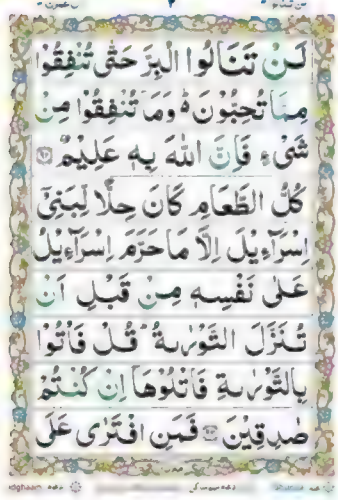 لَنْ تَنَالُوا الْبِرَّ حَتّٰى تُنْفِقُوْا
مِمَّا تُحِبُّوْنَ ؕ وَمَا تُنْفِقُوْا مِنْ
شَیْءٍ فَاِنَّ اللّٰهَ بِهٖ عَلِیْمٌ
كُلُّ الطَّعَامِ كَانَ حِلًّا لِّبَنِیْۤ
اِسْرَآءِیْلَ اِلَّا مَا حَرَّمَ اِسْرَآءِیْلُ
عَلٰى نَفْسِهٖ مِنْ قَبْلِ اَنْ
تُنَزَّلَ التَّوْرٰىةُ ؕ قُلْ فَاْتُوْا
بِالتَّوْرٰىةِ فَاتْلُوْهَاۤ اِنْ كُنْتُمْ
صٰدِقِیْنَ فَمَنِ افْتَرٰى عَلَى